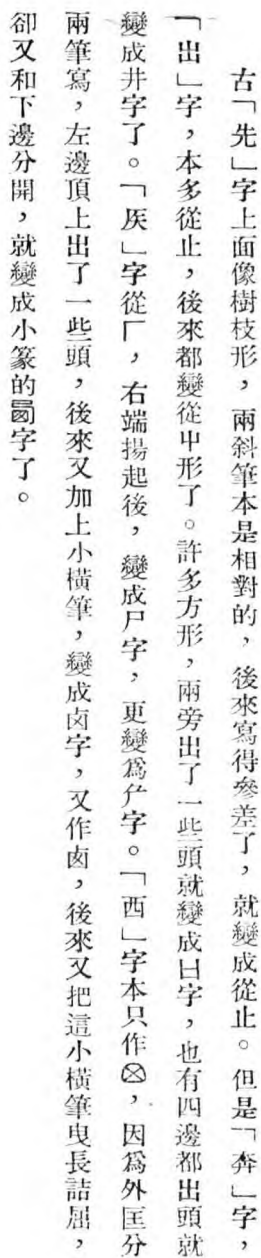 古「先」字上面像樹枝形，兩斜筆本是相對的，後來寫得參差了，就變成從止。但是「奔」字，
「出」字，本多從止，後來都變從屮形了。許多方形，兩旁出了一些頭就變成廿字，也有四邊都出頭就
變成井字了。「灰」字從厂，右端揚起後，變成尸字，更變爲字。「西」字本只作，因爲外匡分
兩筆寫，左邊頂上出了一些頭，後來又加上小橫筆，變成卤字，又作卤，後來又把這小橫筆曳長詰屈，
卻又和下邊分開，就變成小篆的字了。